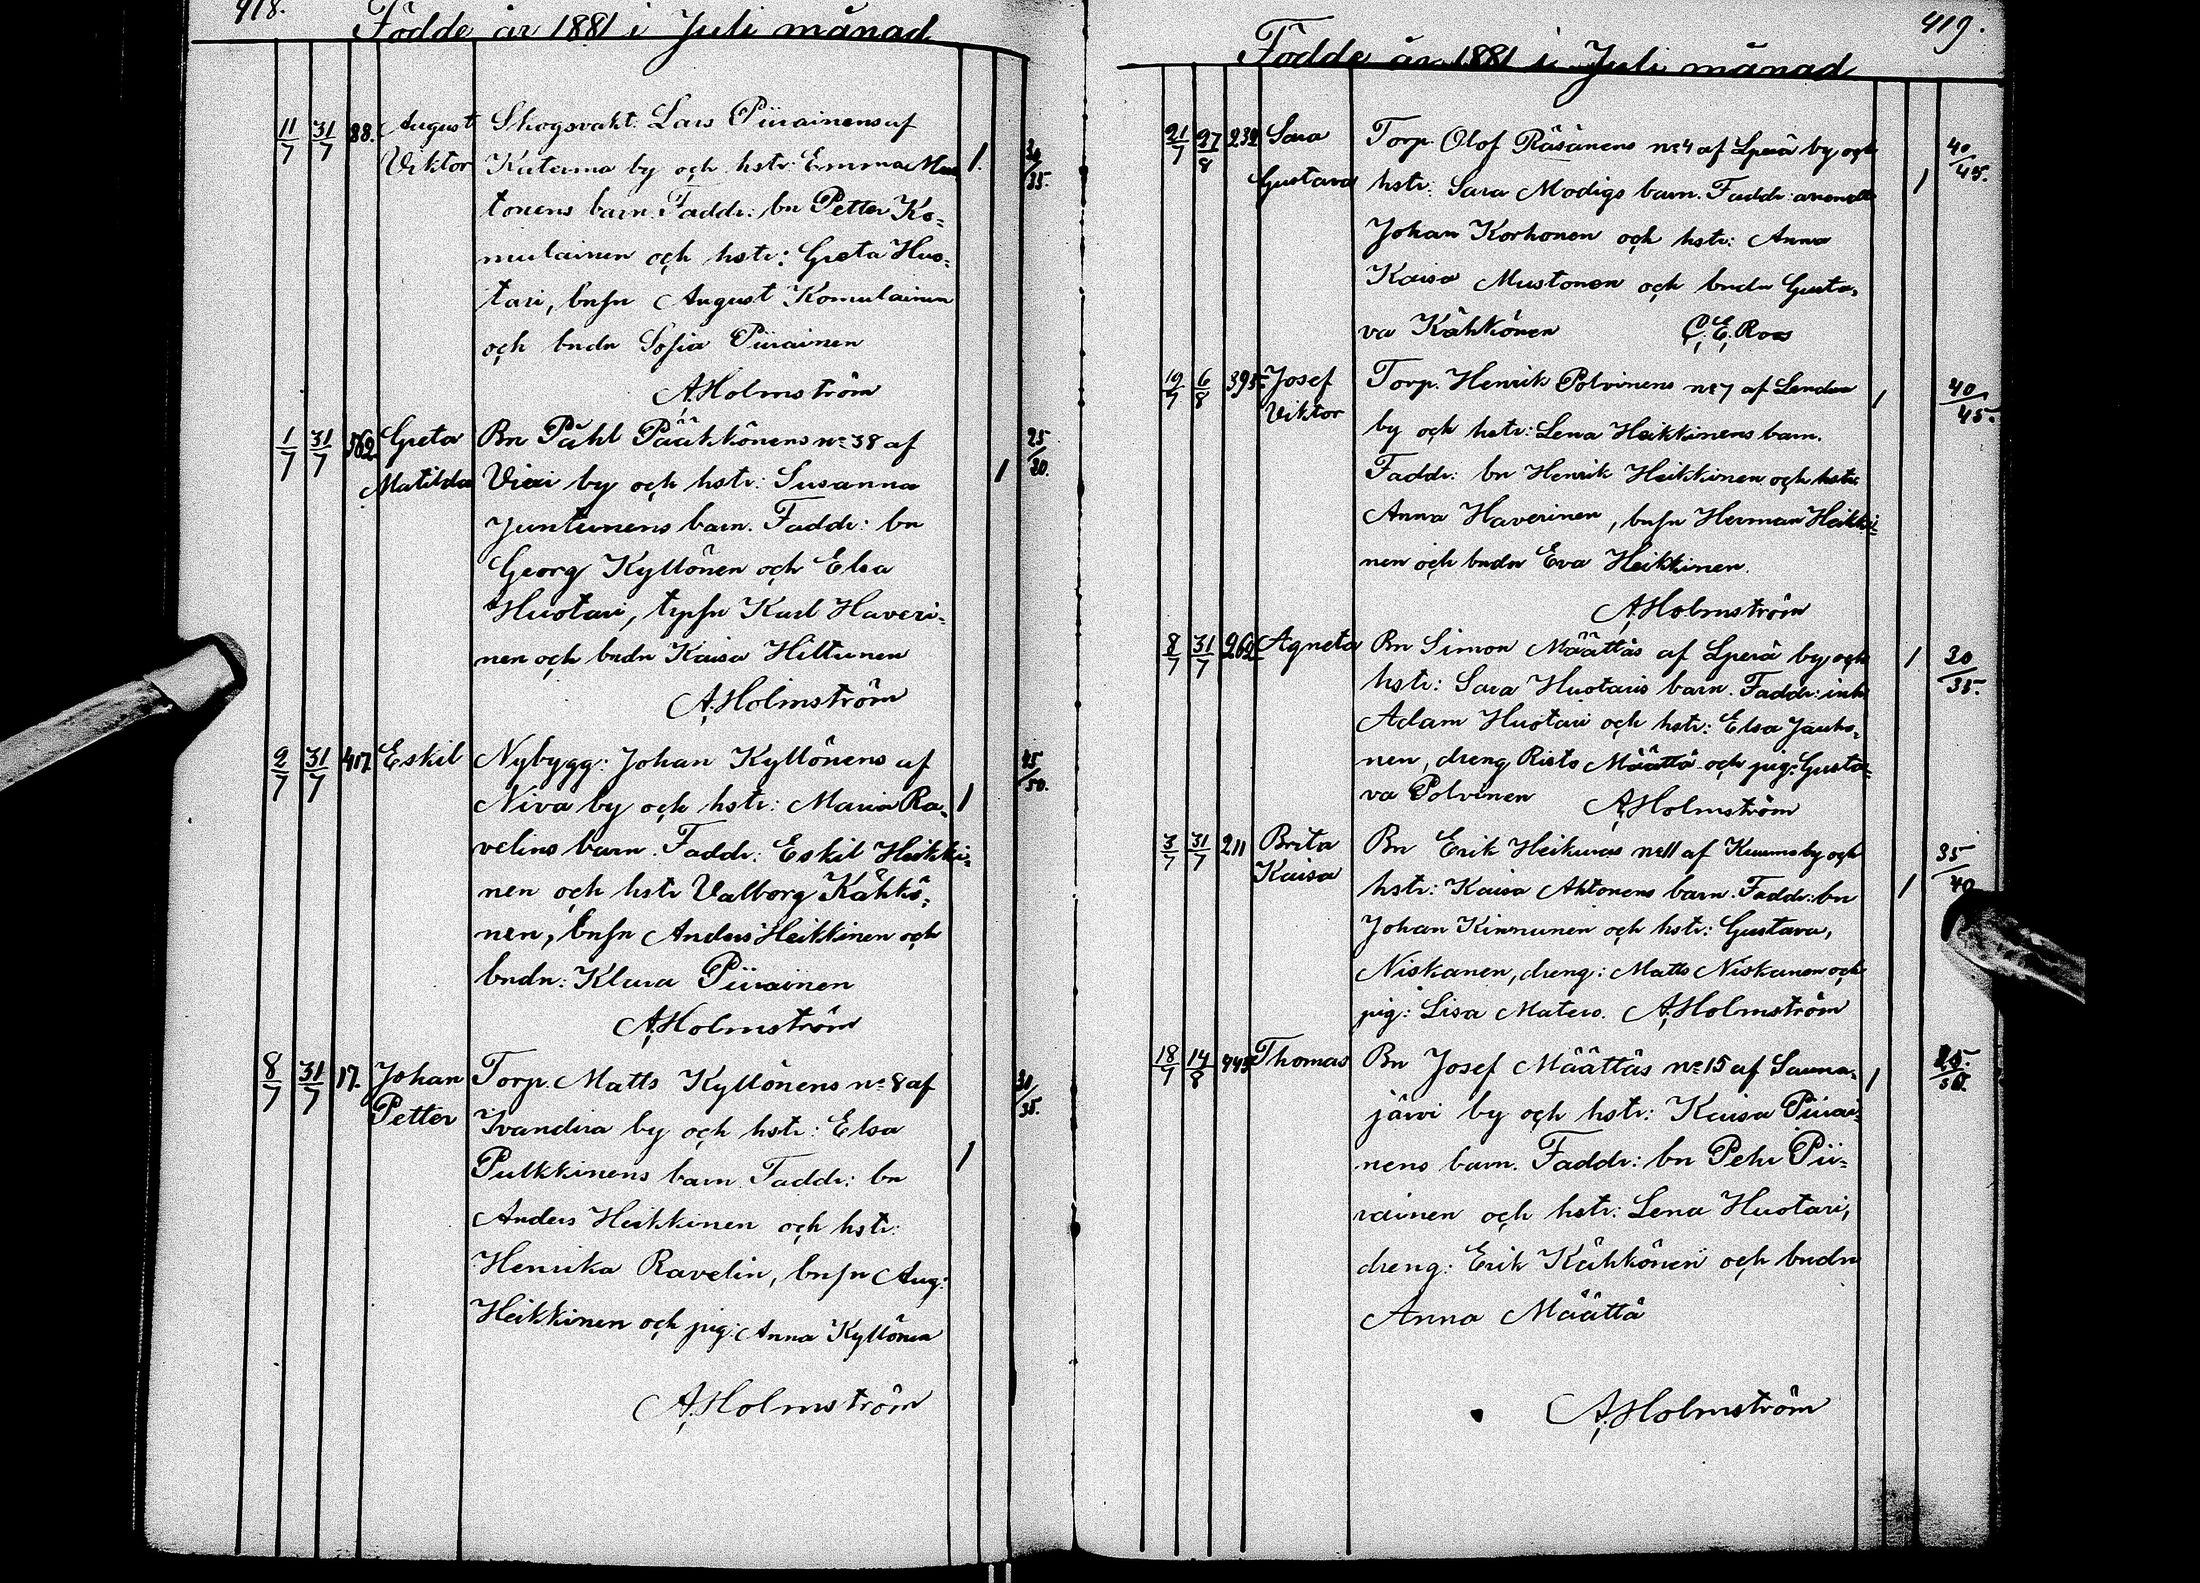 418.
Födde år 1881 i Juli månad
11/7 31/7 88. August Skogsvakt. Lars Piirainens af
Viktor Katerma by och hstr: Emma Mus 1. 30/35.
tonens barn. Faddr: bn Petter Ko=
mulainen och hstr: Greta Huo=
tari, bnsn August Komulainen
och bndr Sofia Piirainen
A. Holmström
1/7 31/7 562. Greta Bn Påhl Pääkkönens No 38 af 25/30.
Matilda Vieki by och hstr: Susanna 1
Juntunens barn. Faddr: bn
Georg Kyllönen och Elsa
Huotari, trpsn Karl Haveri=
nen och bndr Kaisa Hiltunen
A. Holmström
2/7 31/7 417 Eskil Nybygg: Johan Kyllönens af 45/50.
Niva by och hstr: Maria Ra= 1
velins barn. Faddr: Eskil Heikki=
nen och hstr Valborg Kähkö=
nen, bnsn Anders Heikkinen och
bndr: Klara Piirainen
A. Holmström
8/7 31/7 17. Johan Torp. Matts Kyllönens No 8 af 30/35.
Petter Ivandira by och hstr: Elsa
Pulkkinens barn Faddr: bn 1
Anders Heikkinen och hstr:
Henrika Ravelin, bnsn Aug:
Heikkinen och pig: Anna Kyllönen
A. Holmström
419.
Födde år 1881 i Juli månad
21/7 27/8 232 Sara Torp. Olof Räsänens No 4 af Lperä by och 40/45.
Gustava hstr: Sara Modigs barn. Faddr: 1
Johan Korhonen och hstr: Anna
Kaisa Mustonen och bndr Gusta=
va Kähkönen C. E. Roos
19/7 6/8 395. Josef Torp. Henrik Polvinens No 7 af Lendua 1 40/45.
Viktor by och hstr: Lena Heikkinens barn.
Faddr: bn Henrik Heikkinen och hstr
Anna Haverinen, bnsn Herman Heikki=
nen och bndr Eva Heikkinen.
A. Holmström
8/7 31/7 262 Agneta Bn Simon Määttäs af Lperä by och 1 30/35.
hstr: Sara Huotaris barn. Faddr: inh
Adam Huotari och hstr: Elsa Jauho=
nen, dreng Risto Määttä och pig: Gusta=
va Polvinen A. Holmström
3/7 31/7 211 Brita Bn Erik Heikuras No 11 af Kuumo by och 35/40
Kaisa hstr: Kaisa Ahtonens barn. Faddr: bn 1
Johan Kinnunen och hstr: Gustava,
Niskanen, dreng: Matts Niskanen och
pig: Lisa Matero. A. Holmström
18/7 14/8 445 Thomas Bn Josef Määttäs No 15 af Sauna= 1
järvi by och hstr: Kaisa Piirai=
nens barn. Faddr: bn Pehr Pii=
rainen och hstr: Lena Huotari,
dreng: Erik Kähkönen och bndr
Anna Määttä
A. Holmström